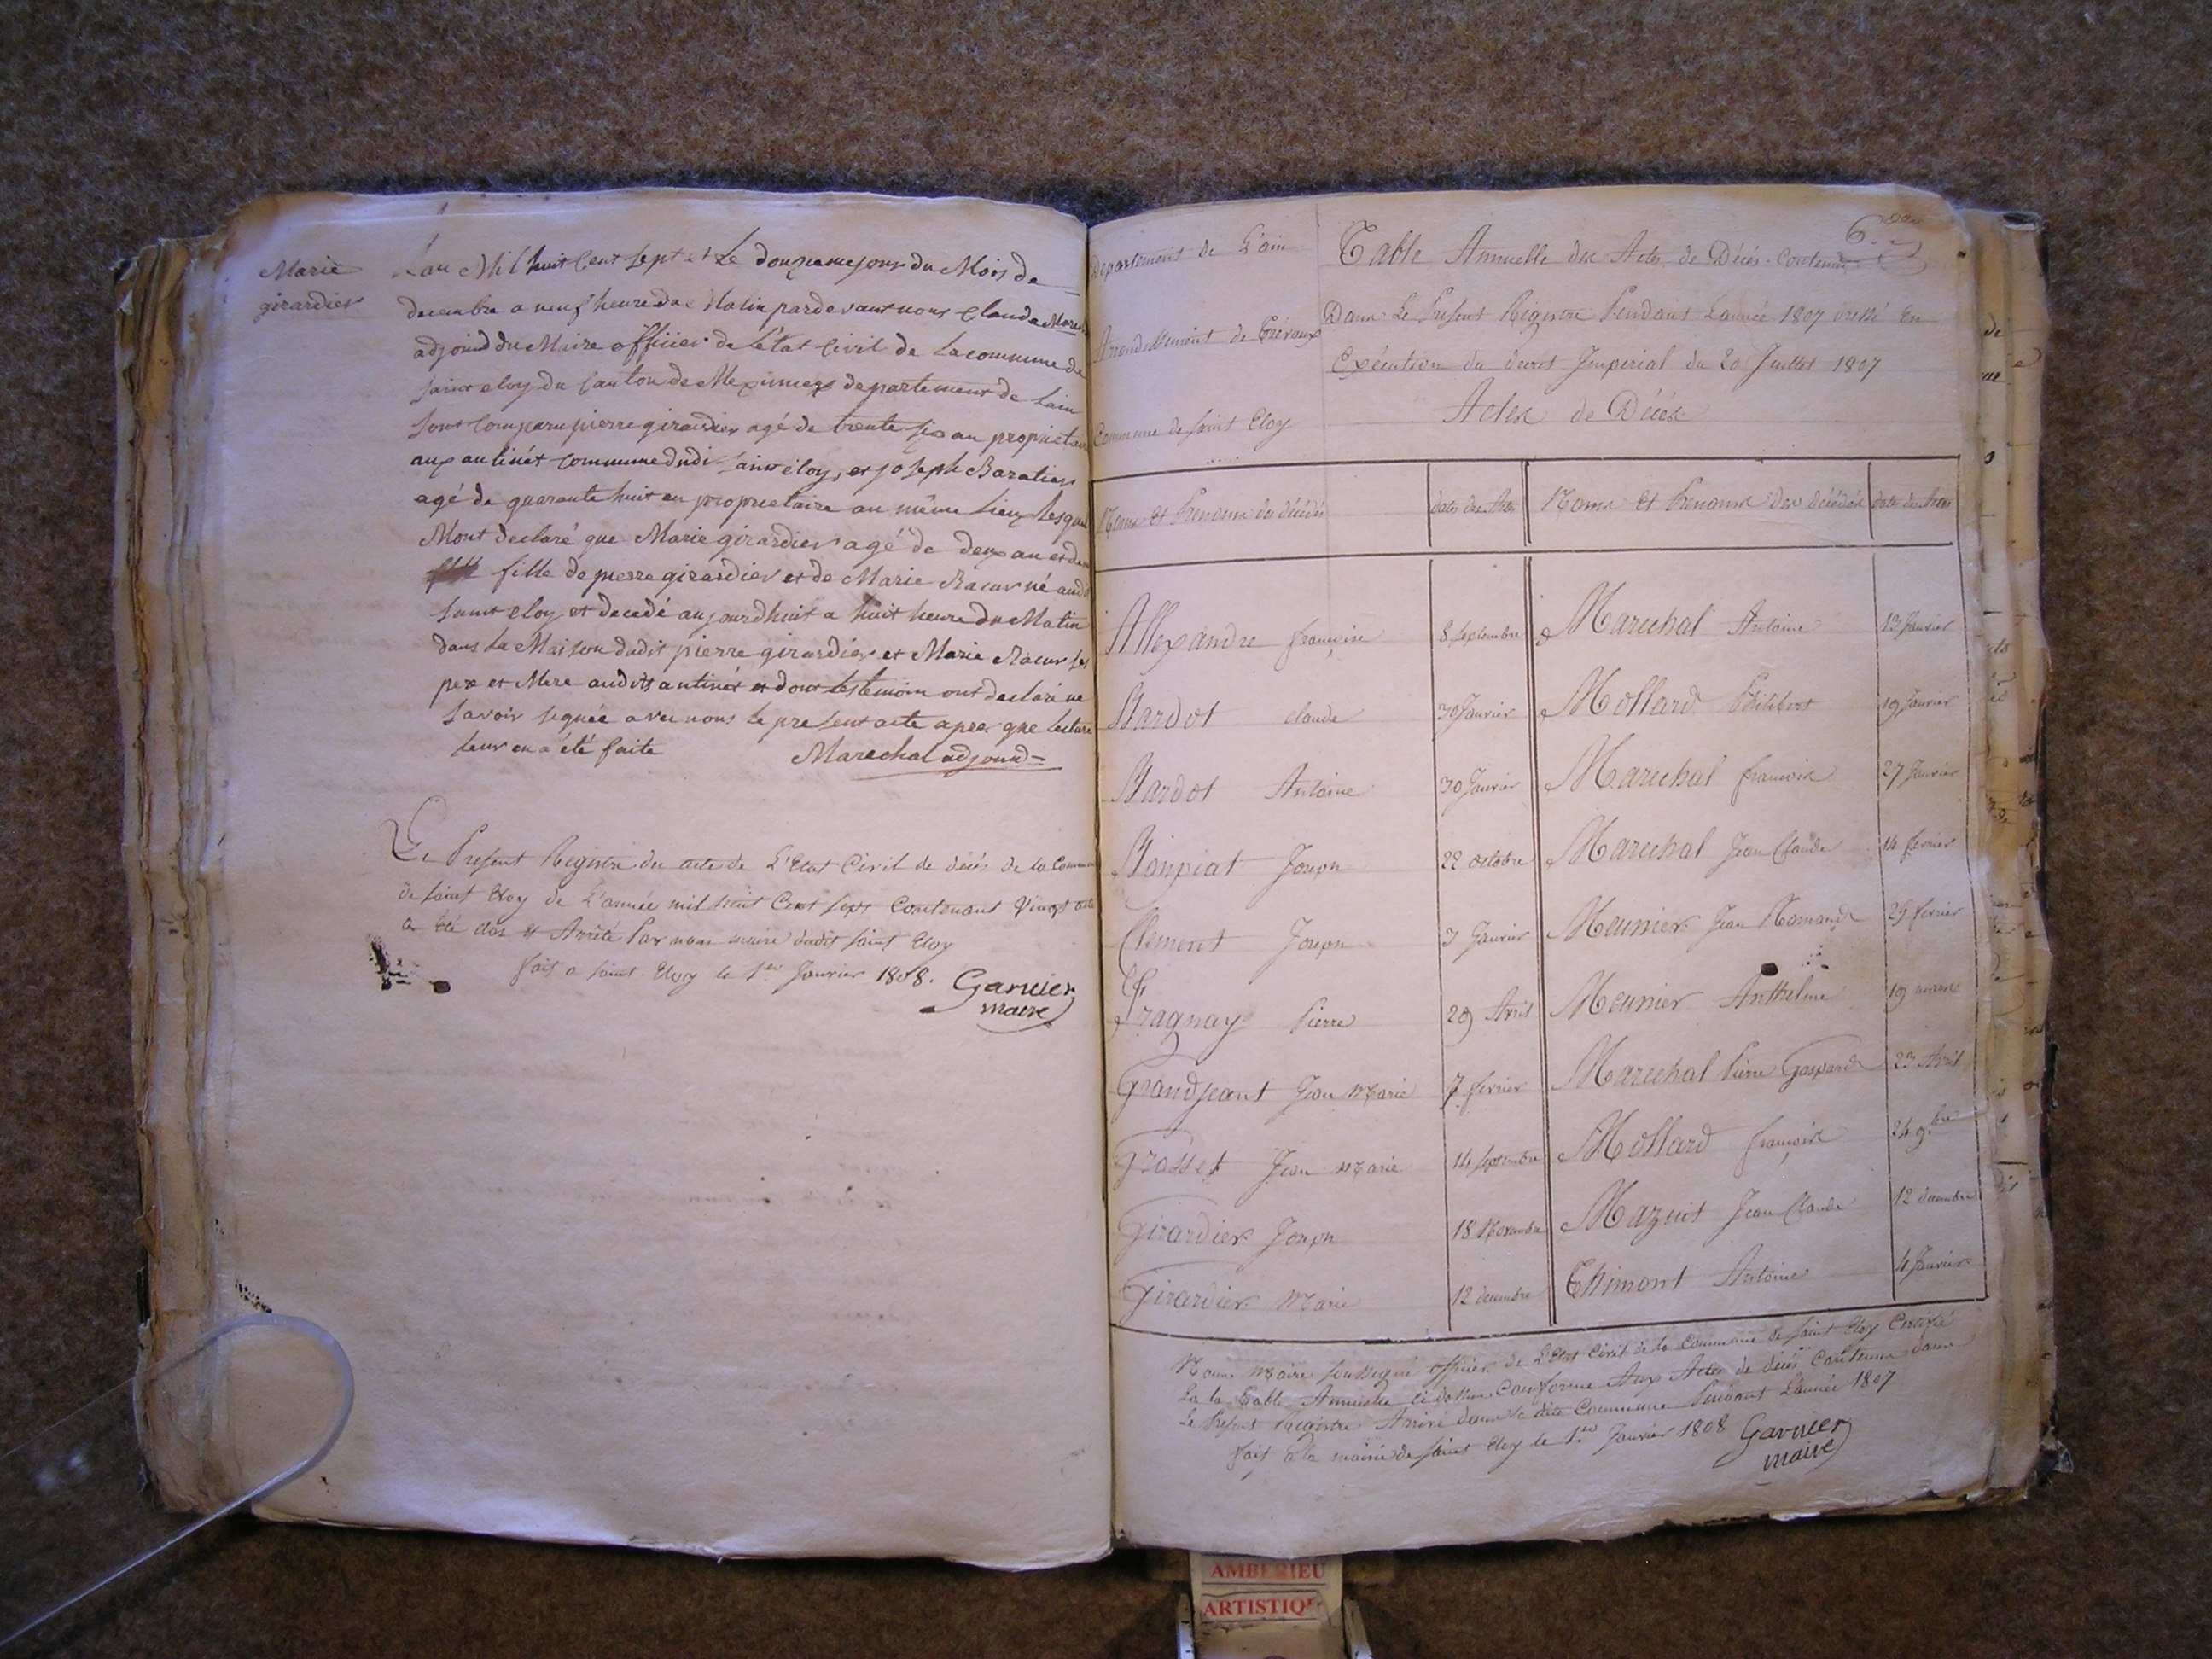 Marie
girardier
Lan Mil huit Cent Sept et Le douzieme jour du Mois de
decembre a neuf heure du Matin pardevant nous Claude Marechal
adjoind du Maire officier de létat Civil de la commune de
Saint eloy du Canton de Meximieux departement de Lain
Sont Comparu pierre girardier agé de trente six an proprietaire
commune dudi Saint éloy, et joseph Baratier
agé de quarante huit an proprietaire au même Lieu Lesquel
Mont declaré que Marie girardier agé de deux an et
fille de pierre girardier et de Marie né audi
Saint eloy et decedé aujourdhuit a huit heure du Matin
dans La Maison dudit pierre girardier et Marie Ses
pere et Mere audit et dont les temoin ont declaré ne
Savoir signée avec nous le present acte apres que lecture
leur en a été faite Marechal adjoind
Le Present Registre des acte de L'Etat Civil de décés de la Commune
de Saint Eloy de L'année mil huit Cent Sept Contenant Vingt acte
a été clos et Arrêté Par nous maire dudit Saint Eloy
fait a Saint Eloy le 1er Janvier 1808. Garnier
maire
6
Departement de L'ain
Arrondissement de Trévoux
Commune de Saint Eloy
Table Annuelle des Actes de Décés Contenus
Dans Le Présent Régistre Pendant L'année 1807 dressé En
Exécution du decret Impérial du 20 Juillet 1807
Actes de Décés
Noms et Prenoms des décédés dates des Actes Noms et Prenoms des décédés dates des Actes
Allexandre françoise 8 Septembre Marechal Antoine 13 Janvier
Bardot Claude 30 Janvier Mollard Philibert 19 Janvier
Bardot Antoine 30 Janvier Marechal françoise 27 Janvier
Bonpiat Joseph 22 octobre Marechal Jean Claude 14 fevrier
Clement Joseph 3 Janvier Meunier Jean 29 fevrier
Fragnay Pierre 29 Avril Meunier Anthelme 19 mars
Grandjeant Jean Marie 7 fevrier Marechal Pierre Gaspard 23 Avril
Grosset Jean Marie 14 Septembre Mollard françoise 24 9bre
Girardier Joseph 18 Novembre Mazuit Jean Claude 12 decembre
Girardier Marie 12 decembre Thimont Antoine 4 Janvier
Nous Maire Soussigné officier de L'Etat Civil de la Commune de Saint Eloy Certifié
La la Table Annuelle ci dessus Conforme Aux Actes de décés Contenus dans
Le Présent Régistre Arrivé dans la dite Commune Pendant L'année 1807
fait a la mairie de Saint Eloy le 1er Janvier 1808 Garnier
maire
AMBERIEU
ARTISTIQUE